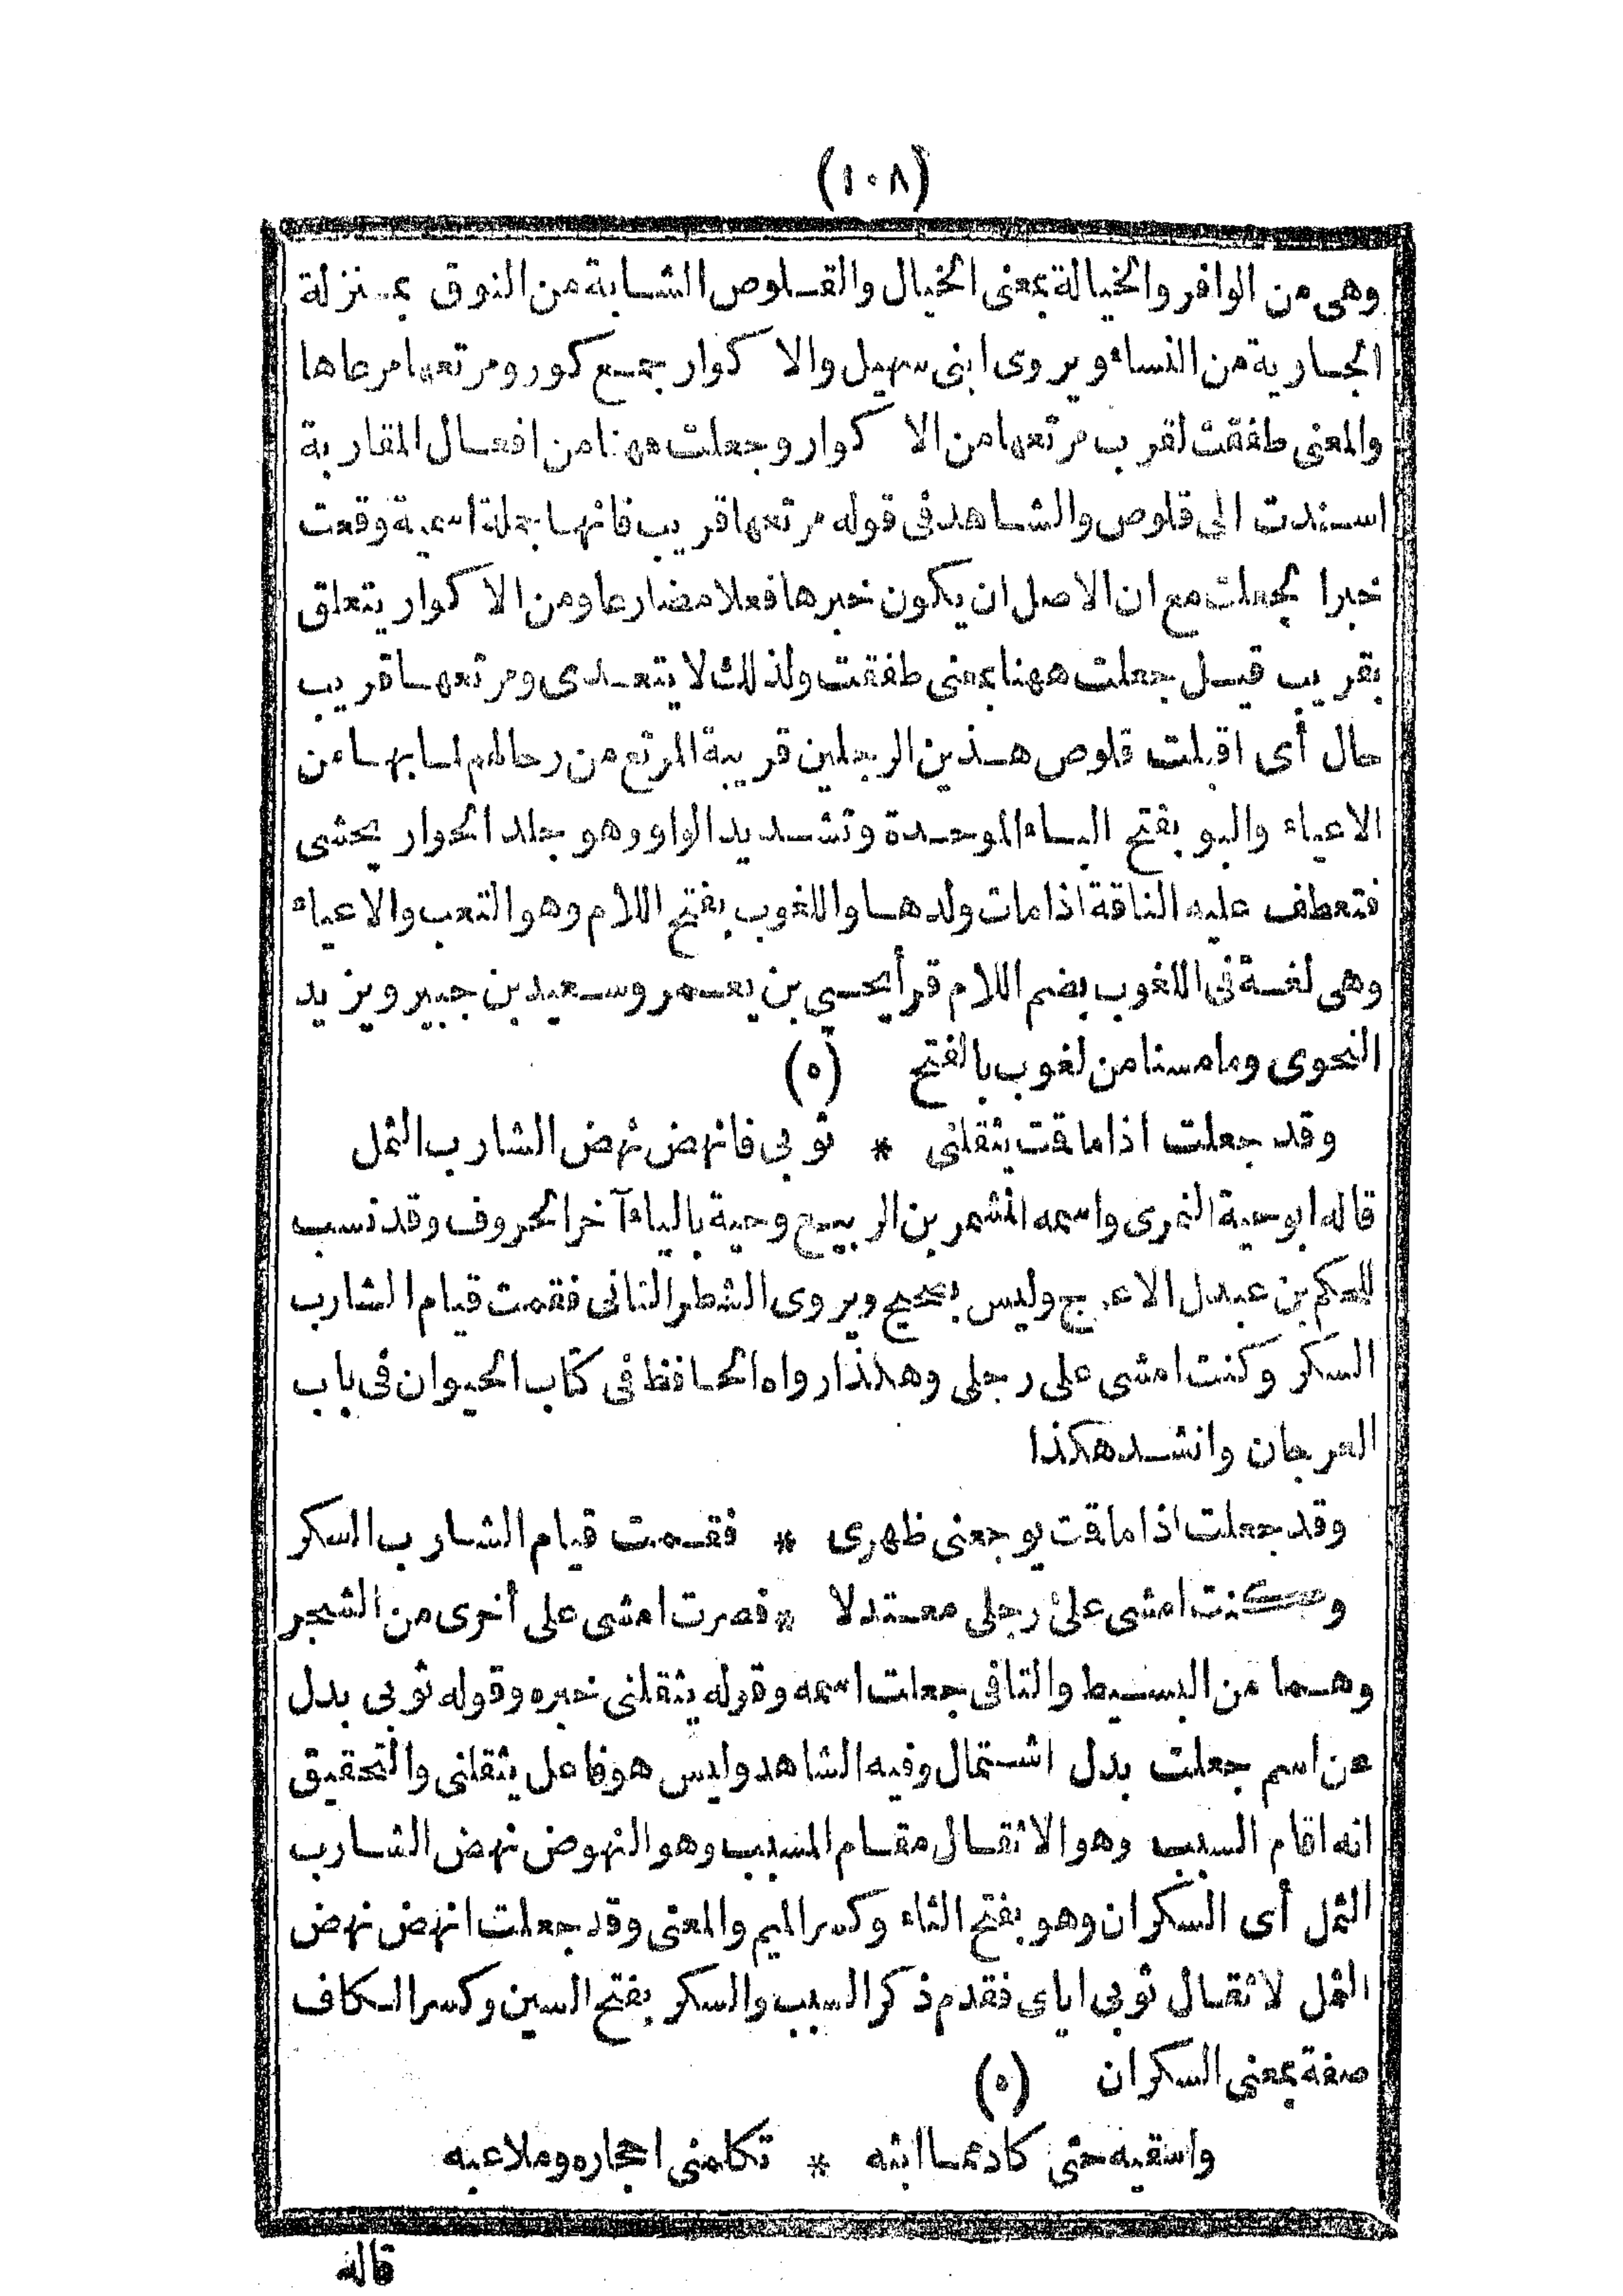 (١٠٨)
وهى من الوافر والخيالة بمعنى الخيال والقلوص الشابة من النوق بمنزلة
الجارية من النساء ويروى ابنى سهيل والاكوار جمع كور ومرتعها مرعاها
والمعنى طفقت لقرب مرتعها من الاكوار وجعلت ههنا من افعال المقاربة
اسندت الى قلوص والشاهد فى قوله مرتعها قريب فانها جملة اسمية وقعت
خبرا لجعلت مع ان الاصل ان يكون خبرها فعلا مضارعا ومن الاكوار يتعلق
بقريب قيل جعلت ههنا بمعنى طفقت ولذلك لا يتعدى ومرتعها قريب
حال أى اقبلت قلوص هذين الرجلين قريبة المرتع من رحالهم لما بها من
الاعياء والبو بفتح الباء الموحدة وتشديد الواو وهو جلد الحوار يحشى
فتعطف عليه الناقة اذا مات ولدها واللغوب بفتح اللام وهو التعب والاعياء
وهى لغة فى اللغوب بضم اللام قرأ يحيي بن يعمر وسعيد بن جبير ويزيد
النحوى وما مسنا من لغوب بالفتح (ه)
وقد جعلت اذا ما قمت يثقلنى * ثوبى فانهض نهض الشارب الثمل
قاله ابو حية النمرى واسمه المشمر بن الربيع وحية بالياء آخر الحروف وقد نسب
للحكم بن عبدل الاعرج وليس بصحيح ويروى الشطر الثانى فقمت قيام الشارب
السكر وكنت امشى على رجلى وهكذا رواه الحافظ فى كتاب الحيوان فى باب
العرجان وانشد هكذا
وقد جعلت اذا ما قمت يوجعنى ظهرى * فقمت قيام الشارب السكر
وكنت امشى على رجلى معتدلا * فصرت امشى على أخرى من الشجر
وهما من البسيط والتا فى جعلت اسمه وقوله يثقلنى خبره وقوله ثوبى بدل
عن اسم جعلت بدل اشتمال وفيه الشاهد وليس هو فاعل يثقلنى والتحقيق
انه اقام السبب وهو الاثقال مقام المسبب وهو النهوض نهض الشارب
الثمل أى السكران وهو بفتح الثاء وكسر الميم والمعنى وقد جعلت انهض نهض
الثمل لاثقال ثوبى اياى فقدم ذكر السبب والسكر بفتح السين وكسر الكاف
صفة بمعنى السكران (ه)
واسقيه حتى كاد مما ابثه * تكلمنى احجاره وملاعبه
قاله